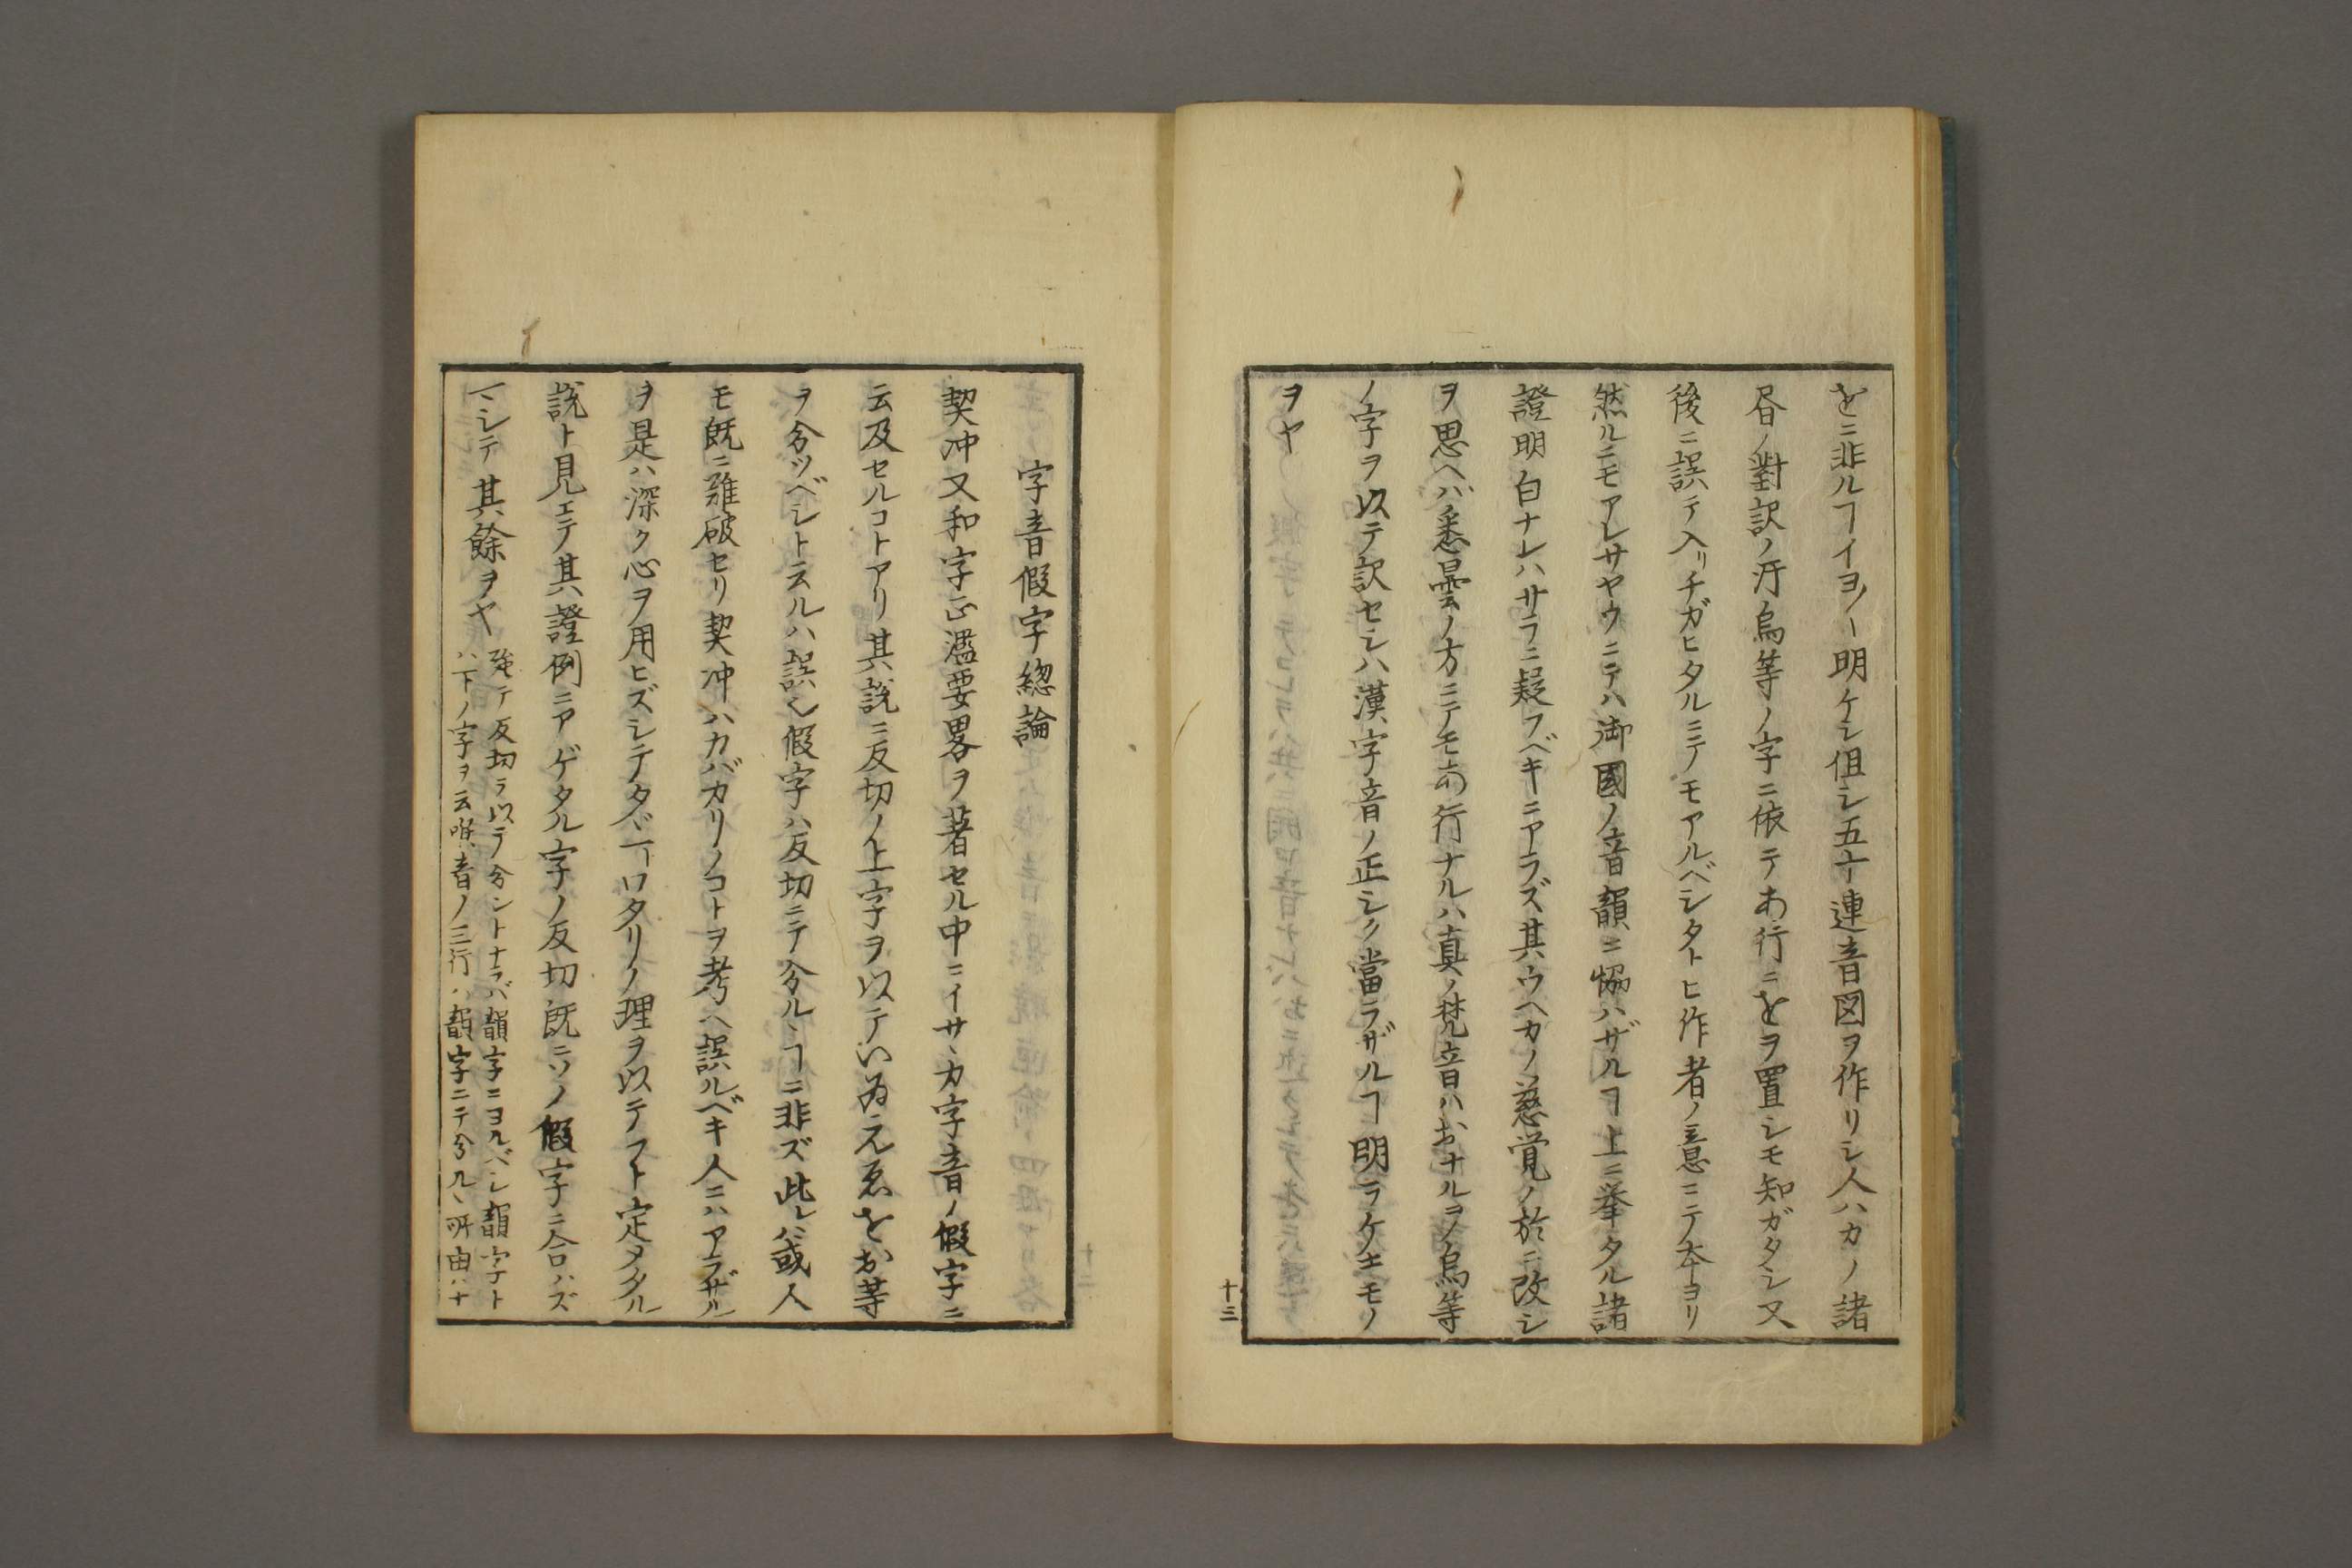 をニ非ルヿイヨ〳〵明ケシ但シ五十連音図ヲ作リシ人ハカノ諸
昏ノ對訳ノ汙烏等ノ字ニ依テあ行ニをヲ置シモ知ガタシ又
後ニ誤テ入リチガヒタルニテモアルベシタトヒ作者ノ意ニテ本ヨリ
然ルニモアレサヤウニテハ御國ノ音韻ニ恊ハザルヿ上ニ挙タル諸
證明白ナレハサラニ疑フベキニアラズ其ウヘカノ慈覚ノ於ニ改シ
ヲ思ヘバ悉曇ノ方ニテモあ行ナルハ真ノ梵音ハおナルヲノ烏等
ノ字ヲ以テ訳セシハ漢字音ノ正シク當ラザルヿ明ラケキモノ
ヲヤ
十三
字音假字總論
契冲又和字正濫要畧ヲ著セル中ニイサヽカ字音ノ假字ニ
云及セルコトアリ其説ニ反切ノ上字ヲ以テいゐえゑをお等
ヲ分ツベシト云ルハ誤也假字ハ反切ニテ分ルヽヿニ非ズ此レハ或人
モ既ニ難破セリ契冲ハカバカリノコトヲ考ヘ誤ルベキ人ニハアラザル
ヲ是ハ深ク心ヲ用ヒズシテタヾ一ワタリノ理ヲ以テフト定メタル
説ト見エテ其證例ニアゲタル字ノ反切既ニソノ假字ニ合ハズ
マシテ其餘ヲヤ
強テ反切ヲ以テ分ントナラバ韻字ニヨルベシ韻字ト
ハ下ノ字ヲ云喉音ノ三行ハ韻字ニテ分ルヽ所由ハナ